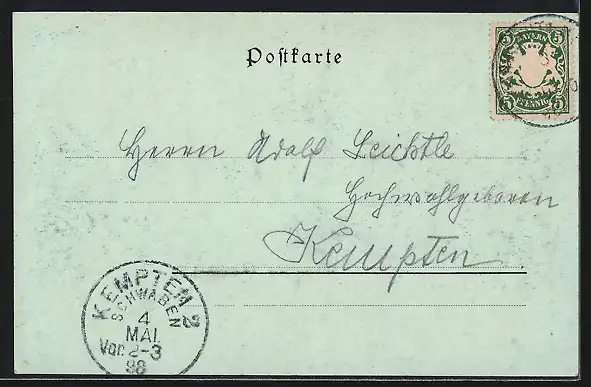 Postkarte
5 BAYERN 5
5 PFENNIG 5
Herrn Adolf Leichtle
Hochwohlgeboren
Kempten
KEMPTEN 2
SCHWABEN
4
MAI.
Vor. 2-3
98